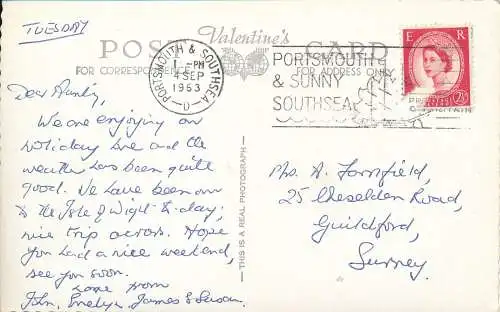 TUESDAY
Valentine's
POST CARD
FOR CORRESPONDENCE
FOR ADDRESS ONLY
PORTSMOUTH & SOUTHSEA
1 - PM
4 SEP
1963
PORTSMOUTH
& SUNNY
SOUTHSEA
E R
2½D
Dear
We are enjoying our
holiday here and the
weather has been quite
good. We have been over
to the Isle of Wight to-day;
nice trip across. Hope
you had a nice weekend,
see you soon.
Love from
John, Evelyn, James & Susan.
THIS IS A REAL PHOTOGRAPH
Mrs. A. Fornfield,
25 Cheselden Road,
Guildford,
Surrey.